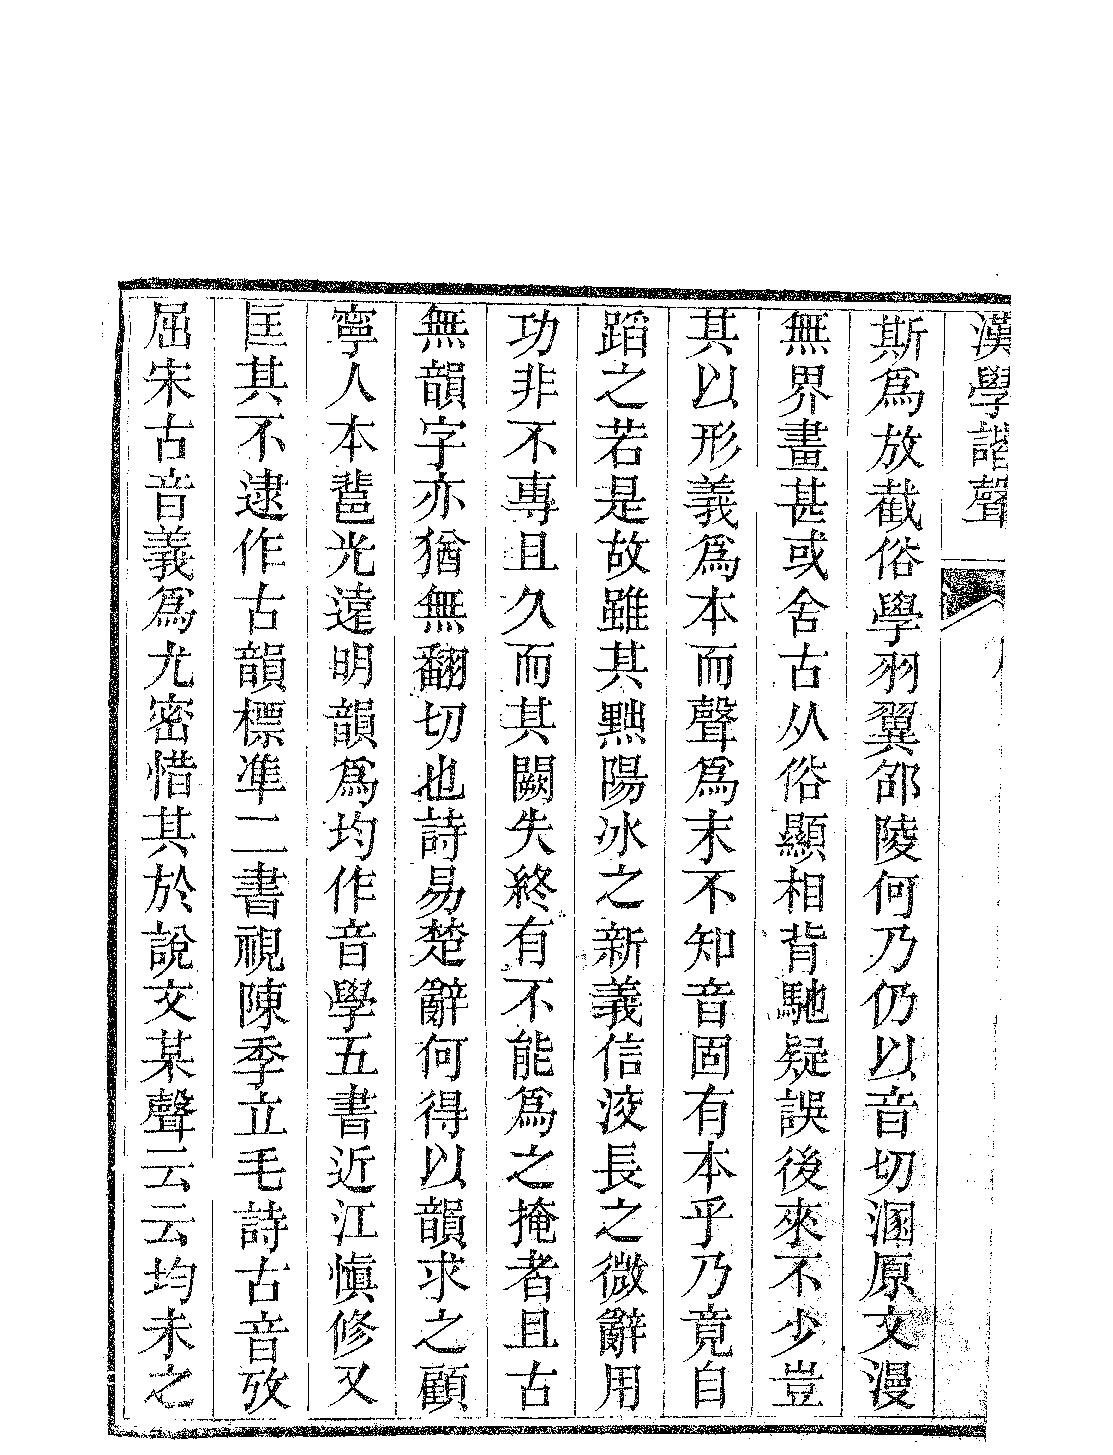 漢學諧聲
斯爲放截俗學羽翼郃陵何乃仍以音切溷原文漫
無界畫甚或舍古从俗顯相背馳疑誤後來不少豈
其以形義爲本而聲爲末不知音固有本乎乃竟自
蹈之若是故雖其黜陽冰之新義信洨長之微辭用
功非不專且久而其闕失終有不能爲之掩者且古
無韻字亦猶無翻切也詩易楚辭何得以韻求之顧
寧人本毘光遠明韻爲均作音學五書近江愼修又
匡其不逮作古韻標準二書視陳季立毛詩古音攷
屈宋古音義爲尤密惜其於說文某聲云云均未之